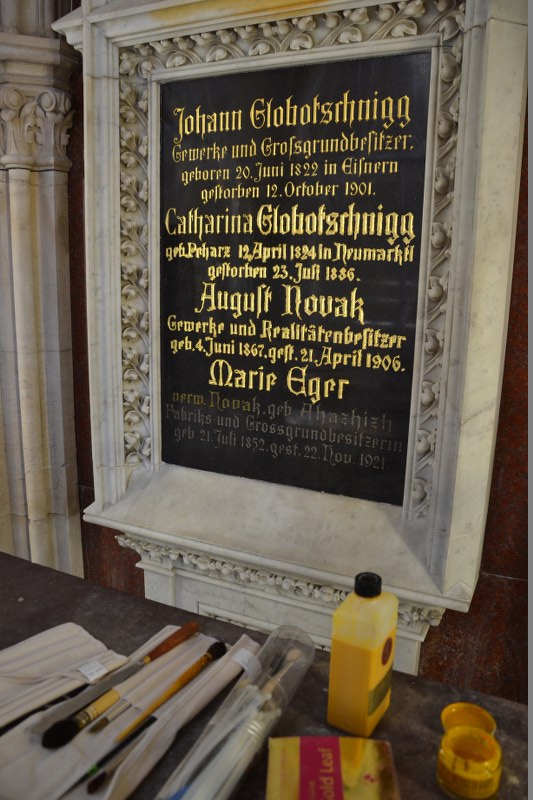 Johann Globotschnigg
Gewerke und Grossgrundbesitzer.
geboren 20. Juni 1822 in Eisnern
gestorben 12. October 1901.
Catharina Globotschnigg
geb. Peharz 12. April 1824 in Neumarktl
gestorben 23. Juli 1886.
August Novak
Gewerke und Realitätenbesitzer
geb. 4. Juni 1867. gest. 21. April 1906.
Marie Eger
verw. Novak, geb. Ahazhizh
Fabriks- und Grossgrundbesitzerin
geb. 21 Juli 1852, gest. 22. Nov. 1921
Gold Leaf